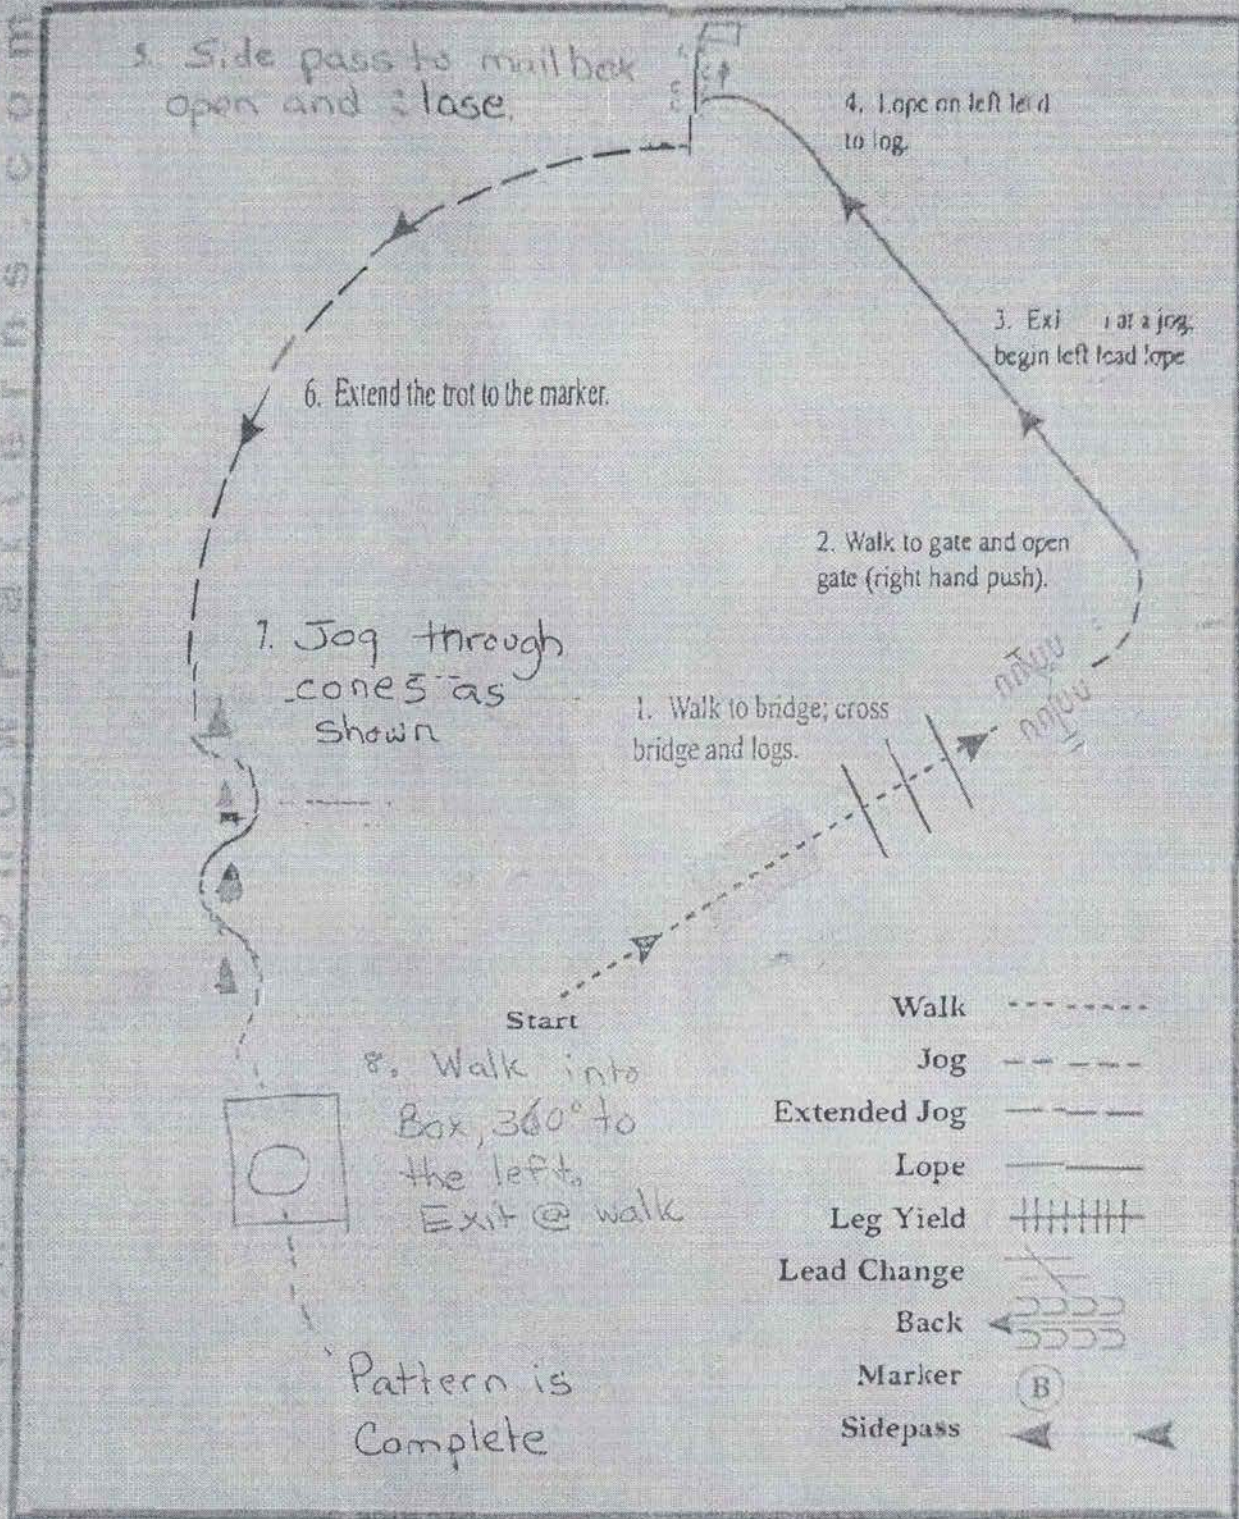 5. Side pass to mailbox
open and close.
4. Lope on left lead
to log.
3. Exi at a jog,
begin left lead lope
6. Extend the trot to the marker.
2. Walk to gate and open
gate (right hand push).
7. Jog through
cones as
shown
1. Walk to bridge; cross
bridge and logs.
Start
8. Walk into
Box, 360° to
the left.
Exit @ walk
Pattern is
Complete
Walk
Jog
Extended Jog
Lope
Leg Yield
Lead Change
Back
Marker
B
Sidepass